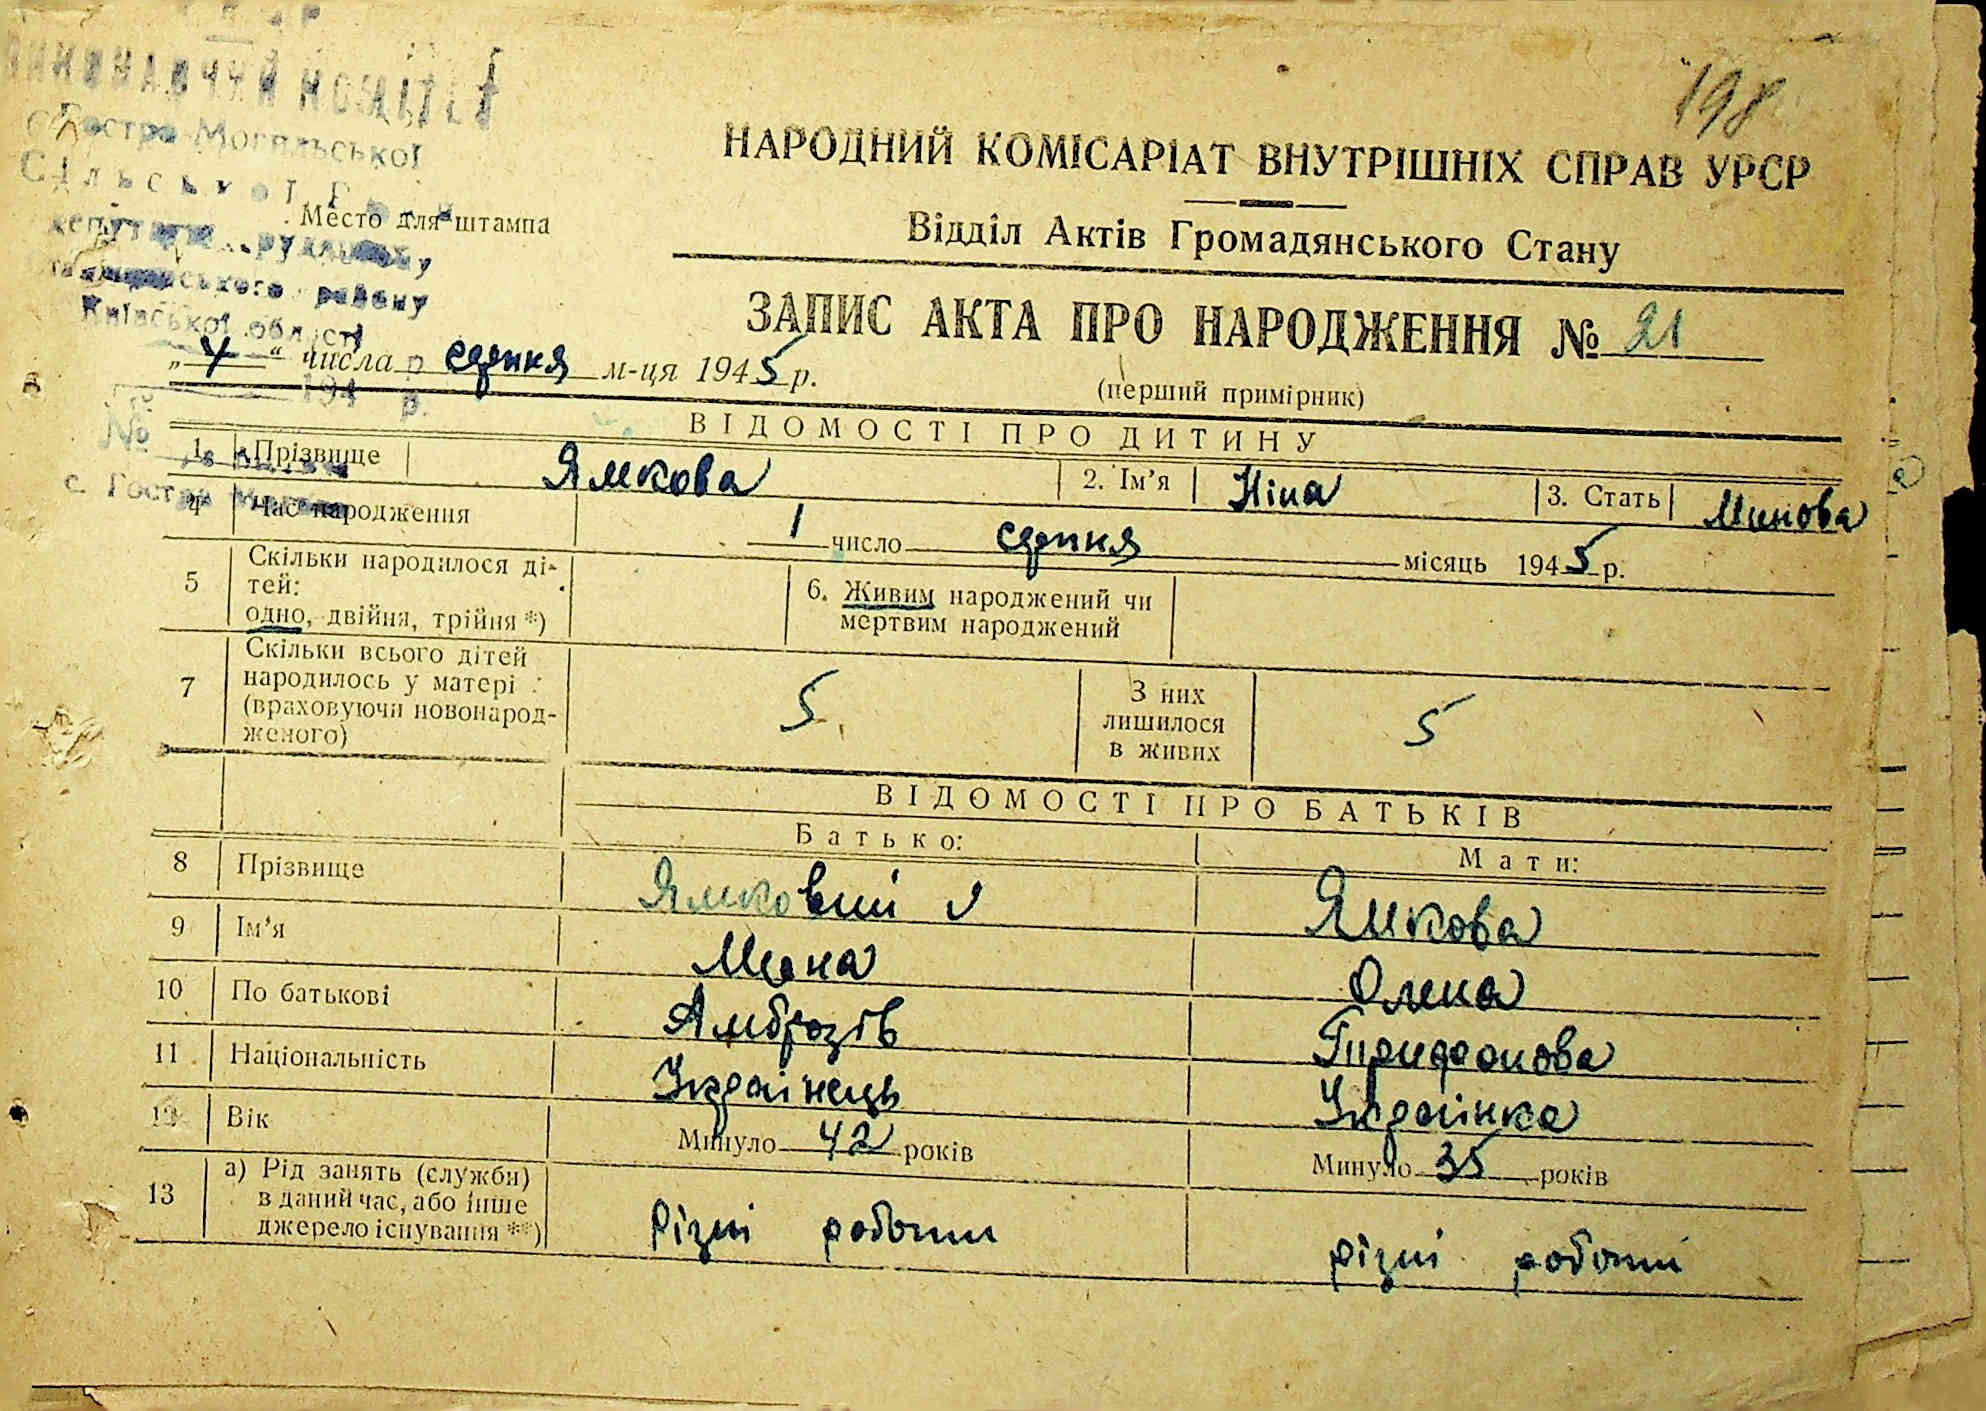 198
Гостро-Могильської
Сільської
Место для штампа
району
Київської області
НАРОДНИЙ КОМІСАРІАТ ВНУТРІШНІХ СПРАВ УРСР
Відділ Актів Громадянського Стану
ЗАПИС АКТА ПРО НАРОДЖЕННЯ № 21
(перший примірник)
„4“ числа серпня м-ця 1945 р.
194 р.
№
с. Гостра Могила
ВІДОМОСТІ ПРО ДИТИНУ
1. Прізвище Ямкова 2. Ім'я Ніна 3. Стать Жіноча
4 Час народження 1 число серпня місяць 1945 р.
5 Скільки народилося ді-
тей:
одно, двійня, трійня *)
6. Живим народжений чи
мертвим народжений
7 Скільки всього дітей
народилось у матері
(враховуючи новонарод-
женого)
5
З них
лишилося
в живих
5
ВІДОМОСТІ ПРО БАТЬКІВ
Батько: Мати:
8 Прізвище Ямковий Ямкова
9 Ім'я Олена
10 По батькові Амброзів
11 Національність Українець Українка
12 Вік Минуло 42 років Минуло 35 років
13 а) Рід занять (служби)
в даний час, або інше
джерело існування **)
різні роботи різні роботи